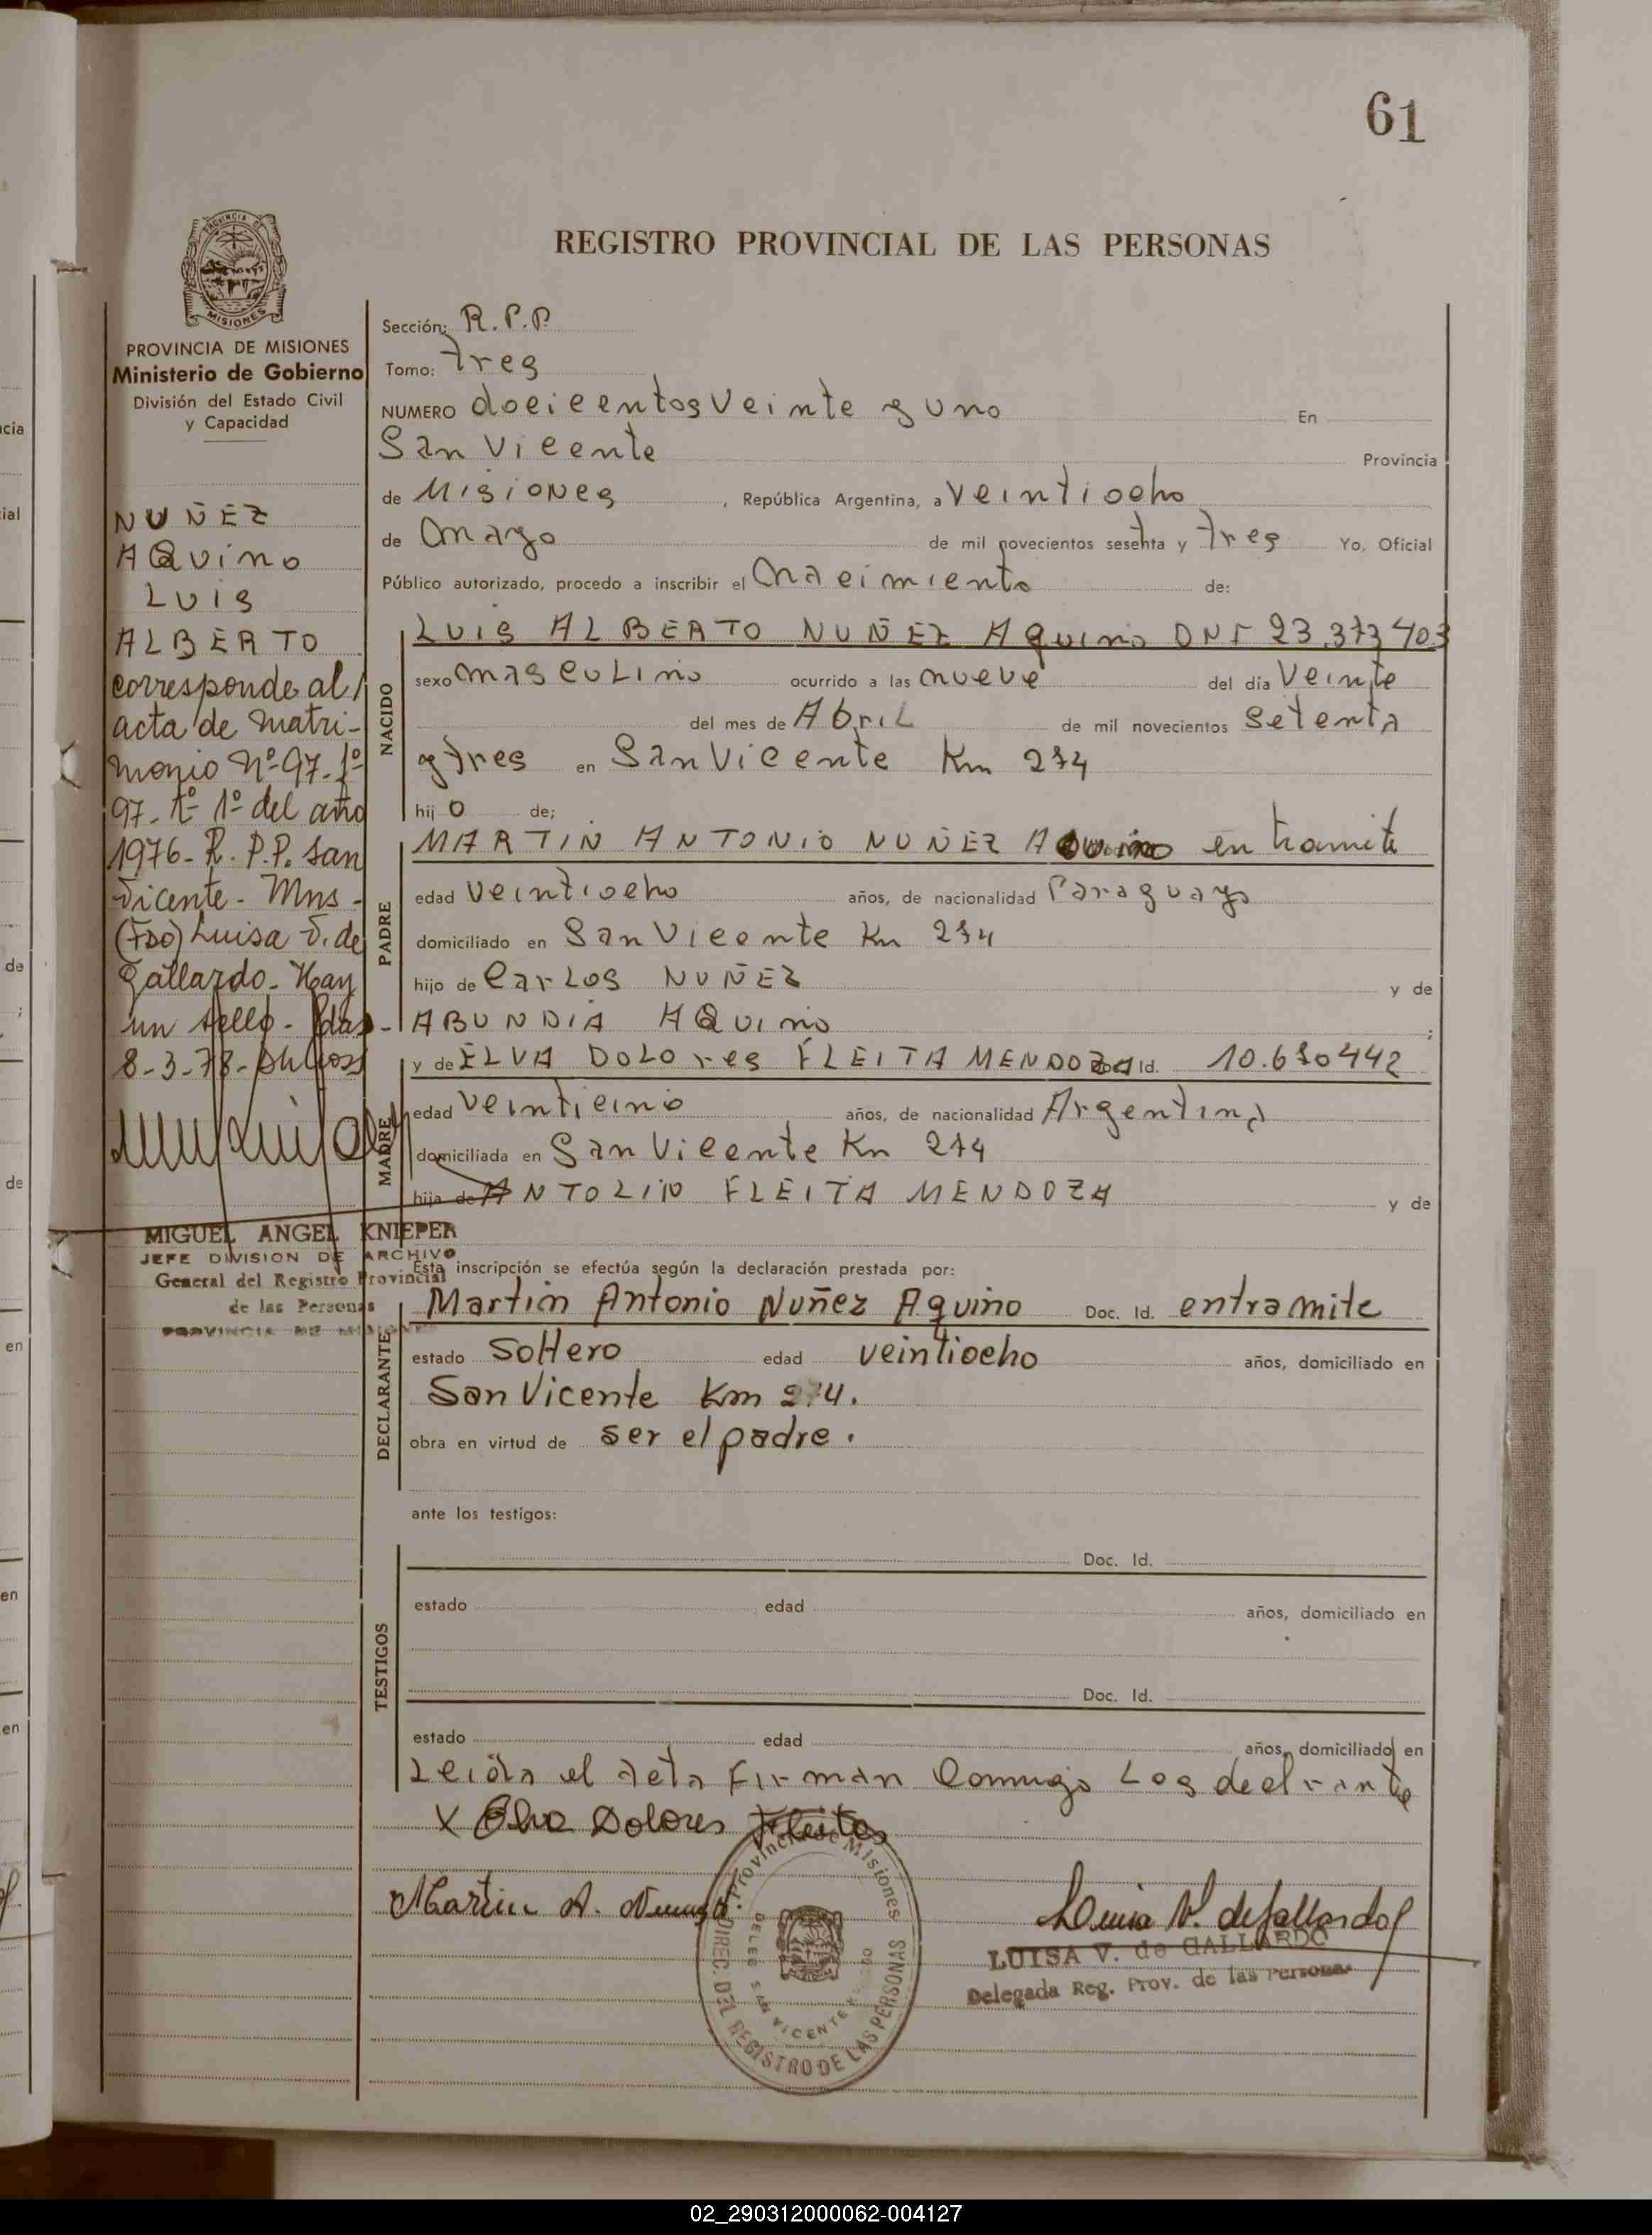 61
PROVINCIA DE
MISIONES
REGISTRO PROVINCIAL DE LAS PERSONAS
PROVINCIA DE MISIONES
Ministerio de Gobierno
División del Estado Civil
y Capacidad
NUÑEZ
AQuino
LUiS
ALBERTO
corresponde al/
acta de matri-
monio Nº 97- fº
97- tº 1º del año
1976- R. P.P. San
Vicente- Mns-
(Fdo) Luisa V. de
Gallardo- Hay
un sello- Pdas-
8-3-78-
MIGUEL ANGEL KNIEPER
JEFE DIVISION DE ARCHIVO
General del Registro Provincial
de las Personas
PROVINCIA DE MISIONES
Sección: R.P.P.
Tomo: tres
NUMERO doeicentos Veinte y uno En
San Vicente Provincia
de Misiones , República Argentina, a Veintiocho
de mayo de mil novecientos sesenta y tres Yo, Oficial
Público autorizado, procedo a inscribir el nacimiento de:
NACIDO
LUiS ALBERTO NUÑEZ Aquino DNI 23.373.403
sexo masculino ocurrido a las nueve del día Veinte
del mes de Abril de mil novecientos setenta
y tres en San Vicente Km 274
hijo de;
PADRE
MARTIN ANTONIO NUÑEZ AQuino en tramite
edad Veintiocho años, de nacionalidad Paraguayo
domiciliado en San Vicente Km 274
hijo de Carlos NUÑEZ y de
ABUNDIA AQuino ;
MADRE
y de ELVA DOLOres FLEITA MENDOZA Id. 10.630442
edad Veinticino años, de nacionalidad Argentina
domiciliada en San Vicente Km 274
hija de ANTOLIN FLEITA MENDOZA y de
Esta inscripción se efectúa según la declaración prestada por:
DECLARANTE
Martin Antonio Nuñez Aquino Doc. Id. entramite
estado Soltero edad veintiocho años, domiciliado en
San Vicente Km 274.
obra en virtud de ser el padre.
ante los testigos:
TESTIGOS
Doc. Id.
estado edad años, domiciliado en
Doc. Id.
estado edad años, domiciliado en
Leida el acta Firman Conmigo Los declrante
X Elva Dolores Fleitas
Martin A. Nunez
Luisa V. de Gallardo
LUISA V. de GALLARDO
Delegada Reg. Prov. de las Personas
Provincia de Misiones
DIREC. DEL REGISTRO DE LAS PERSONAS
DELEG SAN VICENTE
cia
ial
de
;
de
en
en
en
02_290312000062-004127